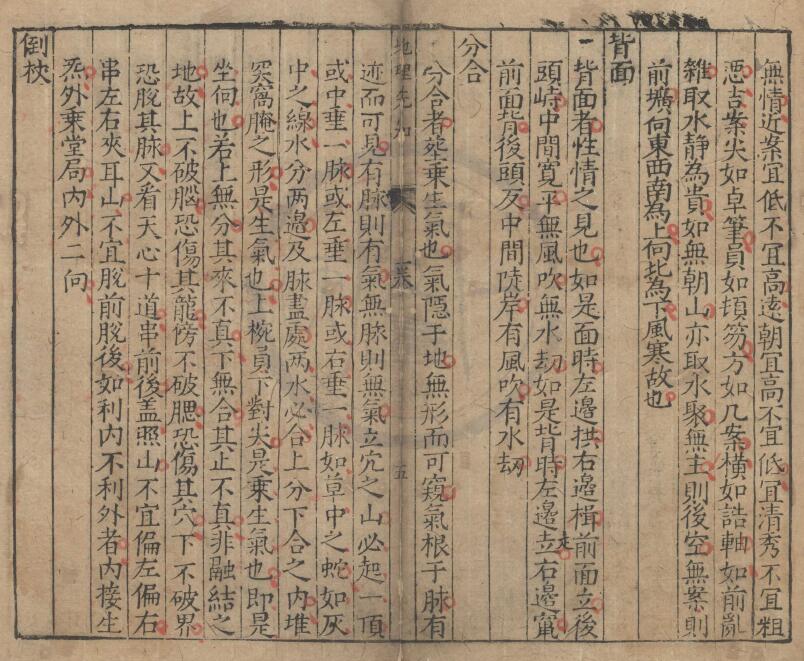 無情近案宜低不宜高遠朝宜高不宜低宜清秀不宜粗
惡吉案尖如卓筆員如頓笏方如几案橫如誥軸如前亂
雜取水靜為貴如無朝山亦取水聚無主則後空無案則
前壙向東西南為上向北為下風寒故也
背面
一背面者性情之見也如是面時左邊拱右邊揖前面立後
頭峙中間寬平無風吹無水劫如是背時左邊立右邊竄
走
前面背後頭反中間陡岸有風吹有水劫
分合
分合者塟乗生氣也氣隱于地無形而可窺氣根于脉有
地理先知
卷
五
迹而可見有脉則有氣無脉則無氣立穴之山必起一頂
或中垂一脉或左垂一脉或右垂一脉如草中之蛇如灰
中之線水分兩邊及脉盡處兩水必合上分下合之內堆
突窩腌之形是生氣也上椀員下對尖是乗生氣也即是
坐向也若上無分其來不真下無合其止不真非融結之
地故上不破腦恐傷其龍傍不破腮恐傷其穴下不破界
恐脫其脉又看天心十道串前後盖照山不宜偏左偏右
串左右夾耳山不宜脫前脫後如利內不利外者內接生
炁外乗堂局內外二向
倒杖